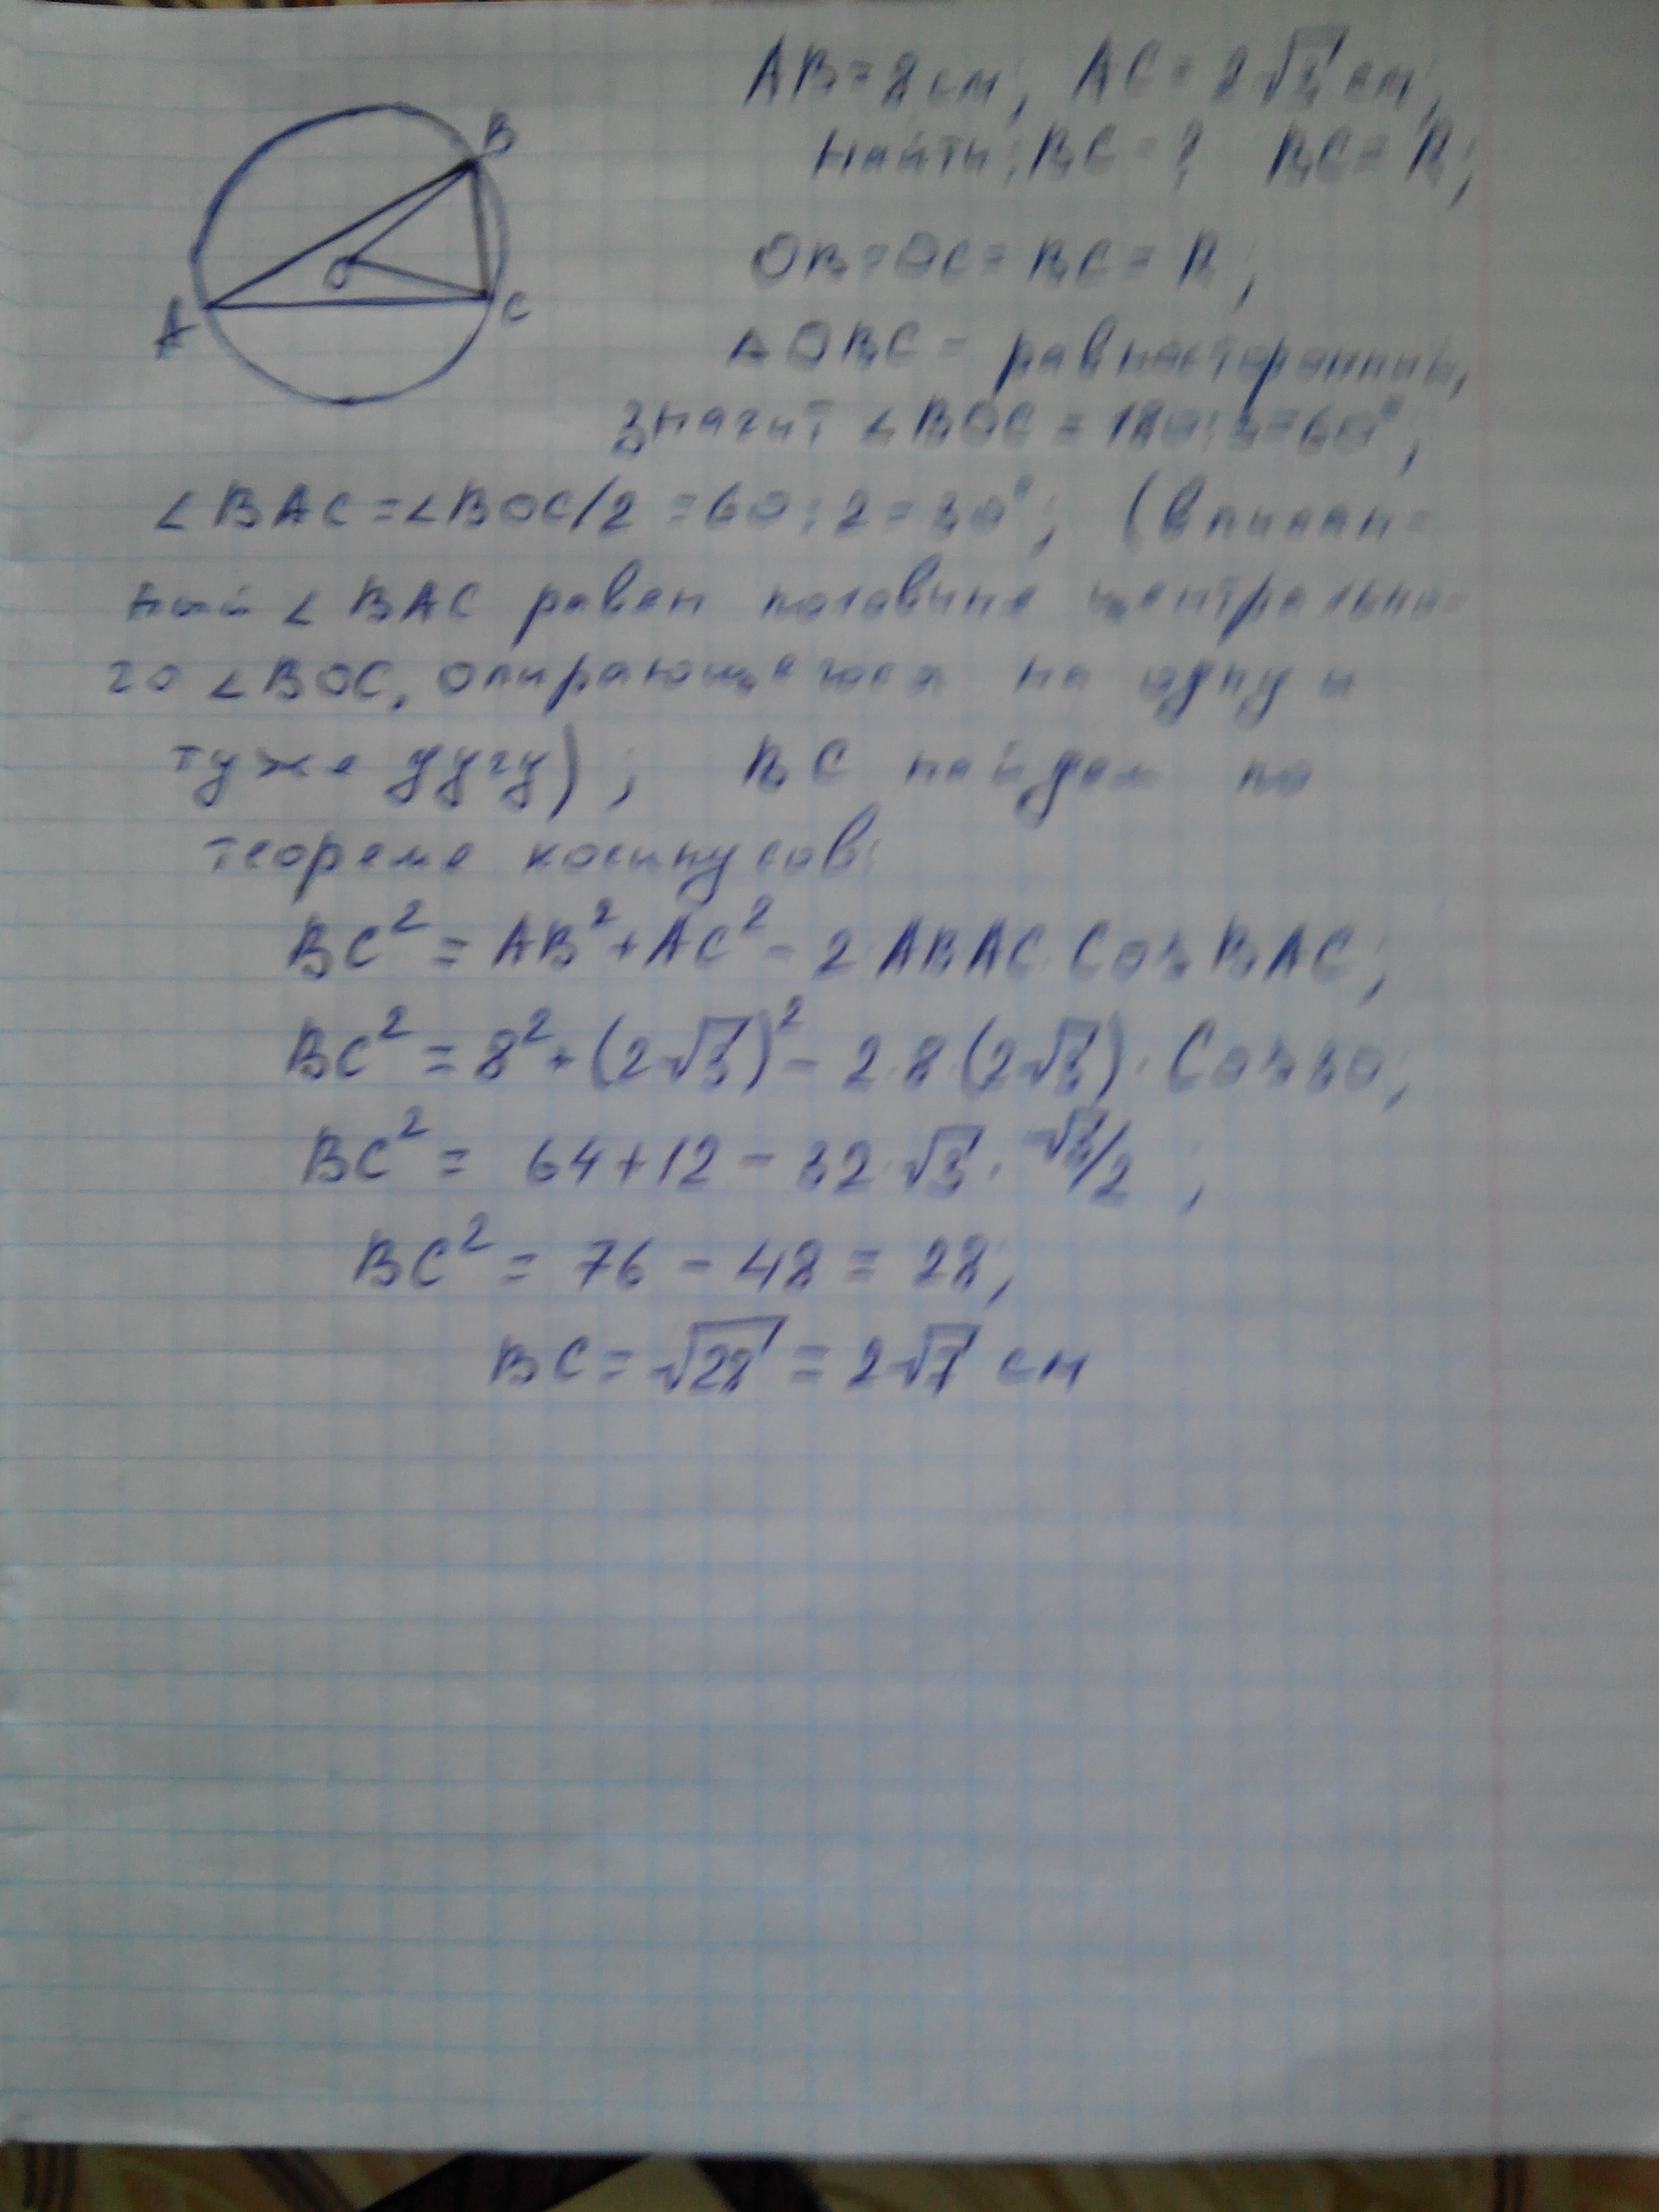 AB=8 см; AC=2√3 см;
Найти; BC-? BC=R;
OB=OC=BC=R;
∆OBC- равносторонний,
значит ∠BOC=180:3=60°;
∠BAC=∠BOC/2=60:2=30°; (вписан-
ный ∠BAC равен половине центрально-
го ∠BOC, опирающегося на одну и
туже дугу); BC найдем по
теореме косинусов:
BC²=AB²+AC²-2·AB·AC·Cos BAC;
BC²=8²+(2√3)²-2·8·(2√3)·Cos30;
BC²=64+12-32·√3·√3/2;
BC²=76-48=28;
BC=√28=2√7 см
B
O
A
C